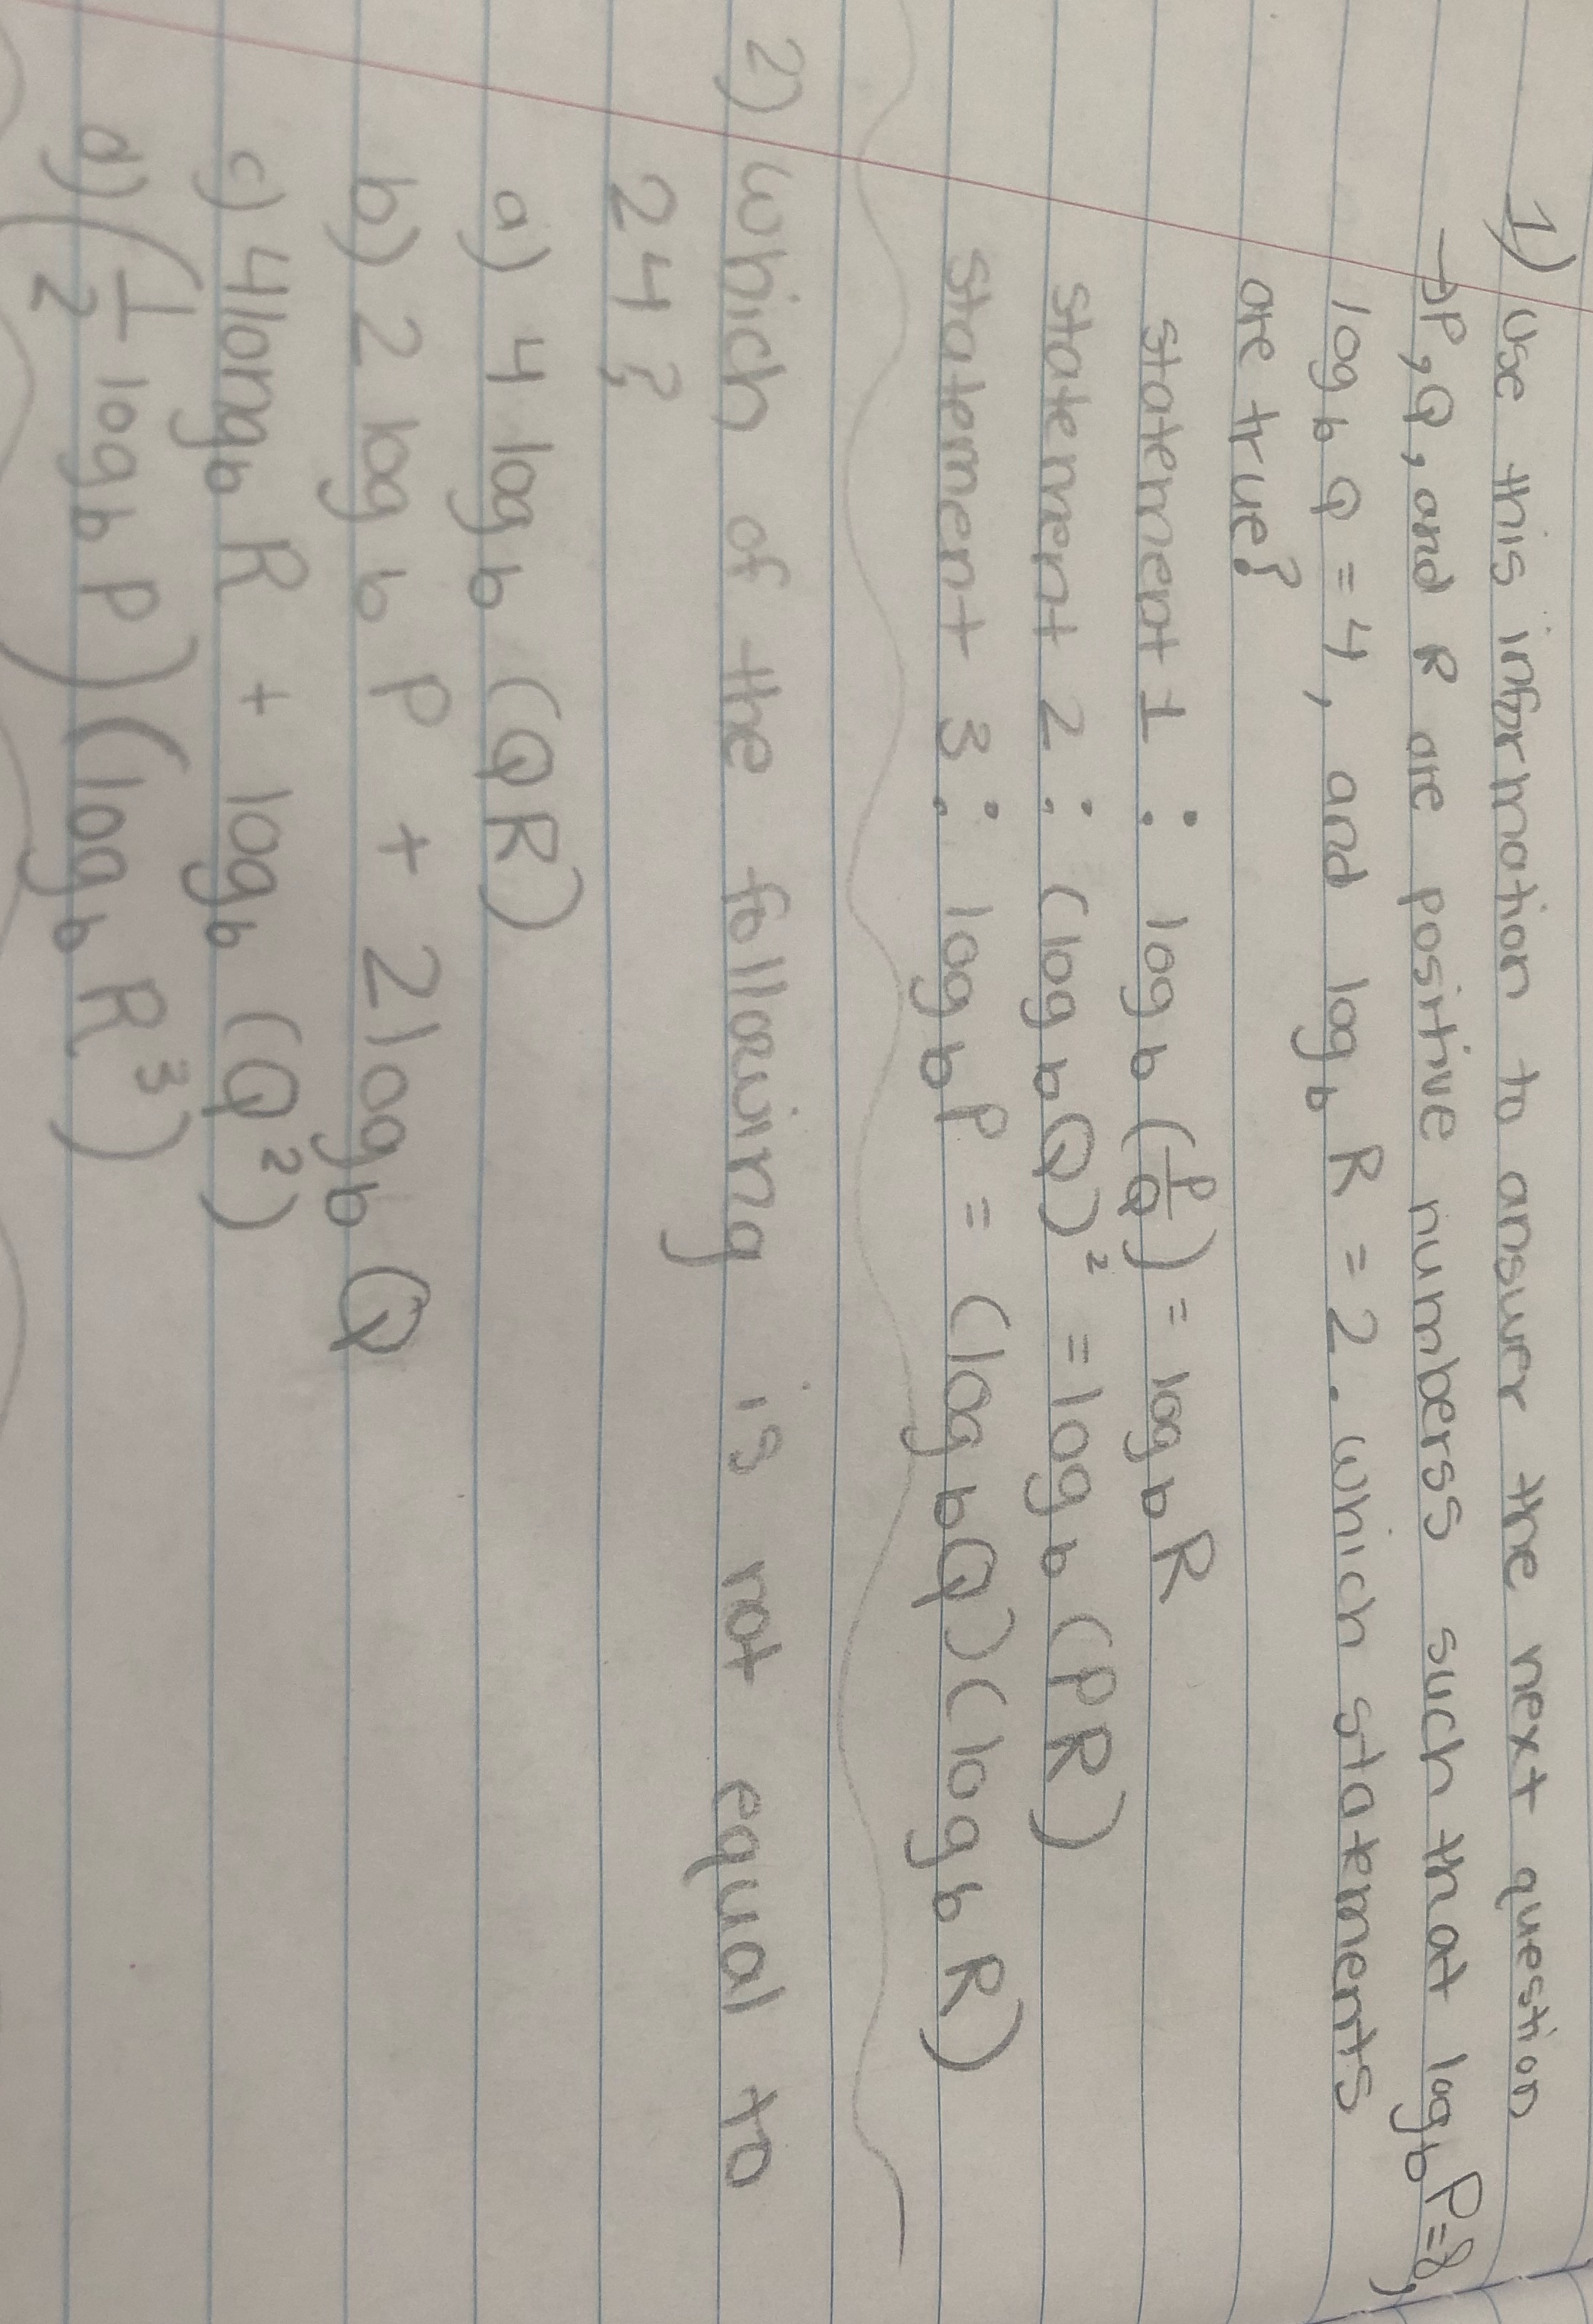 1) Use this information to answer the next question
→P, Q, and R are positive numberss such that log_b P=8,
log_b Q = 4, and log_b R = 2. which statements
are true?
statement 1 : log_b (P/Q) = log_b R
statement 2 : (log_b Q)² = log_b (PR)
statement 3 : log_b P = (log_b Q)(log_b R)
2) which of the following is not equal to
24?
a) 4 log_b (QR)
b) 2 log_b P + 2log_b Q
c) 4long_b R + log_b (Q²)
d) (1/2 log_b P)(log_b R³)